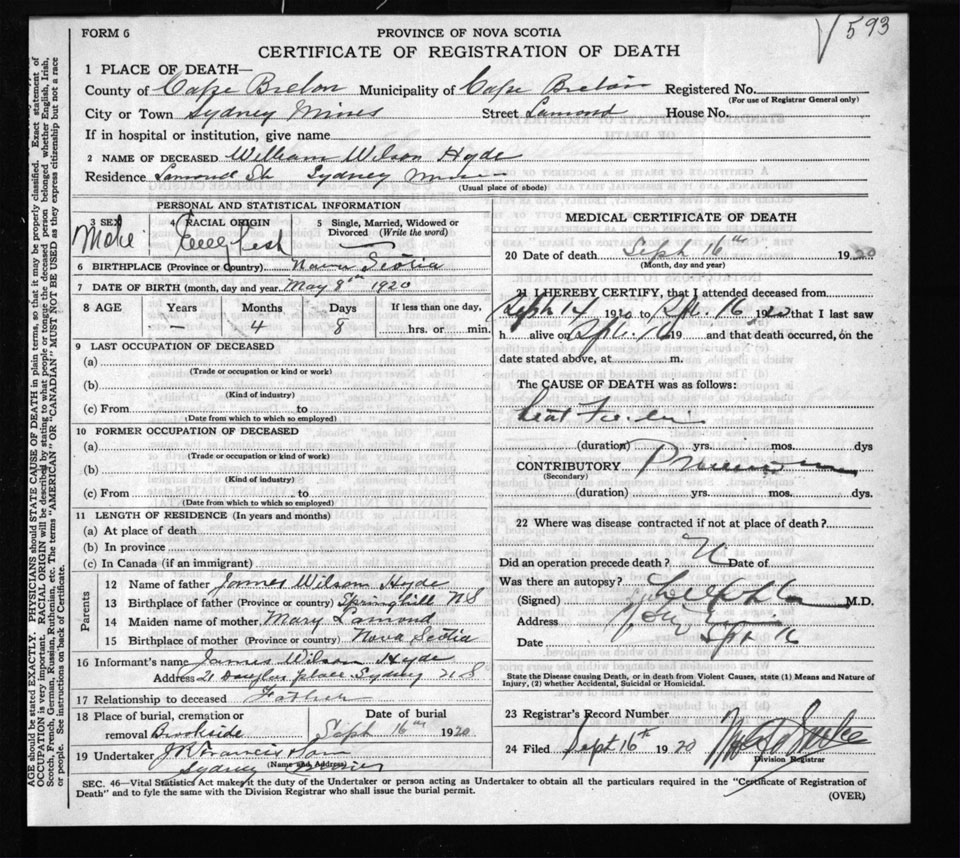 593
FORM 6
PROVINCE OF NOVA SCOTIA
CERTIFICATE OF REGISTRATION OF DEATH
1 PLACE OF DEATH—
County of Cape Breton Municipality of Cape Breton Registered No.
(For use of Registrar General only)
City or Town Sydney Mines Street Lamond House No.
If in hospital or institution, give name
2 NAME OF DECEASED William Wilson Hyde
Residence Lamond St. Sydney Mines
(Usual place of abode)
PERSONAL AND STATISTICAL INFORMATION
3 SEX 4 RACIAL ORIGIN 5 Single, Married, Widowed or Divorced (Write the word)
Male English
6 BIRTHPLACE (Province or Country) Nova Scotia
7 DATE OF BIRTH (month, day and year) May 8th 1920
8 AGE Years Months Days If less than one day,
— 4 8 hrs. or min.
9 LAST OCCUPATION OF DECEASED
(a)
(Trade or occupation or kind of work)
(b)
(Kind of industry)
(c) From to
(Date from which to which so employed)
10 FORMER OCCUPATION OF DECEASED
(a)
(Trade or occupation or kind of work)
(b)
(Kind of industry)
(c) From to
(Date from which to which so employed)
11 LENGTH OF RESIDENCE (In years and months)
(a) At place of death
(b) In province
(c) In Canada (if an immigrant)
Parents
12 Name of father James Wilson Hyde
13 Birthplace of father (Province or country) Springhill NS
14 Maiden name of mother Mary Lamond
15 Birthplace of mother (Province or country) Nova Scotia
16 Informant's name James Wilson Hyde
Address 21 Douglas place Sydney NS
17 Relationship to deceased Father
18 Place of burial, cremation or removal Brookside
Date of burial
Sept 16th 1920
19 Undertaker J R Francis
(Name and Address)
Sydney
MEDICAL CERTIFICATE OF DEATH
20 Date of death Sept 16th 1920
(Month, day and year)
21 I HEREBY CERTIFY, that I attended deceased from
Sept 14 1920 to Spt. 16 1920 that I last saw
h alive on Spt. 16 19 and that death occurred, on the
date stated above, at m.
The CAUSE OF DEATH was as follows:
(duration) yrs. mos. dys
CONTRIBUTORY
(Secondary)
(duration) yrs. mos. dys.
22 Where was disease contracted if not at place of death?
Did an operation precede death? N Date of
Was there an autopsy?
(Signed) M.D.
Address
Date Spt 16
State the Disease causing Death, or in death from Violent Causes, state (1) Means and Nature of Injury, (2) whether Accidental, Suicidal or Homicidal.
23 Registrar's Record Number
24 Filed Sept 16th 1920
Division Registrar
SEC. 46—Vital Statistics Act makes it the duty of the Undertaker or person acting as Undertaker to obtain all the particulars required in the "Certificate of Registration of
Death" and to fyle the same with the Division Registrar who shall issue the burial permit.
(OVER)
AGE should be stated EXACTLY. PHYSICIANS should STATE CAUSE OF DEATH in plain terms, so that it may be properly classified. Exact statement of
OCCUPATION is very important. RACIAL ORIGIN will be described by stating to what people or tongue the deceased person belonged whether English, Irish,
Scotch, French, German, Russian, Ruthenian, etc. The terms "AMERICAN" OR "CANADIAN" MUST NOT BE USED as they express citizenship but not a race
or people. See instructions on back of Certificate.